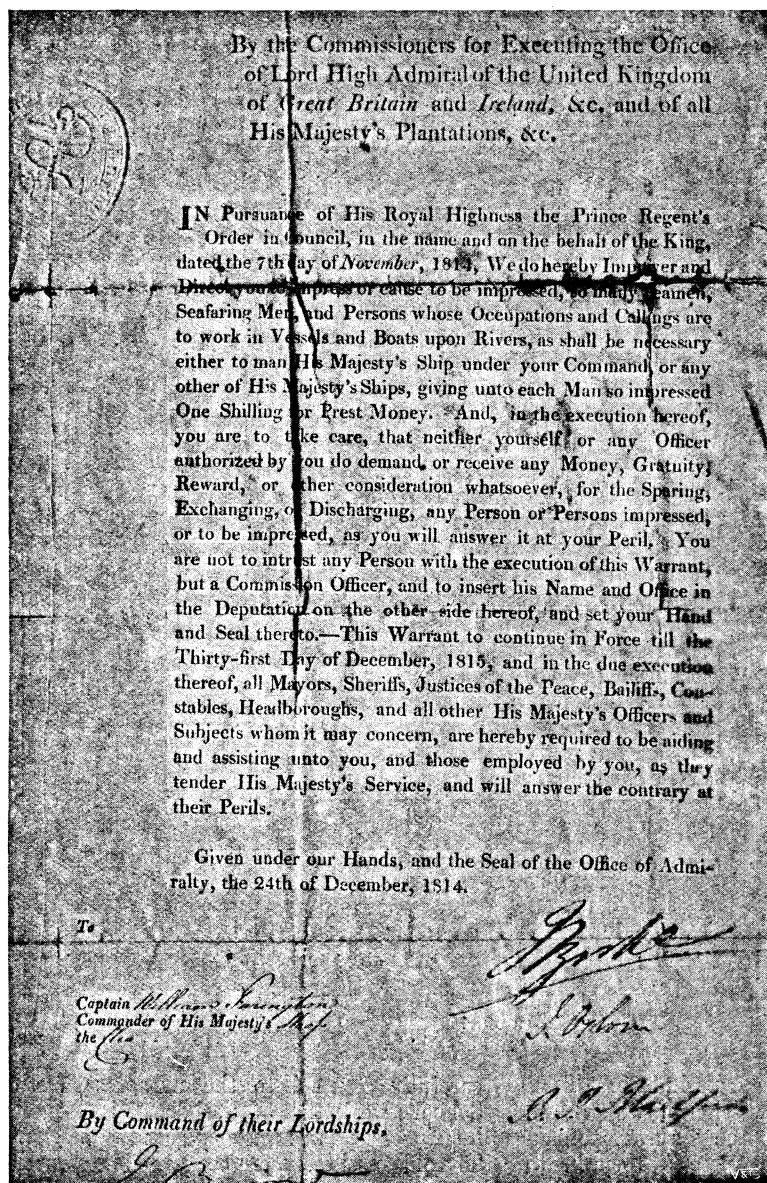 By the Commissioners for Executing the Office
of Lord High Admiral of the United Kingdom
of Great Britain and Ireland, &c. and of all
His Majesty's Plantations, &c.
IN Pursuance of His Royal Highness the Prince Regent's
Order in Council, in the name and on the behalf of the King,
dated the 7th day of November, 1814, We do hereby Impower and
Direct you to impress or cause to be impressed, so many Seamen,
Seafaring Men, and Persons whose Occupations and Callings are
to work in Vessels and Boats upon Rivers, as shall be necessary
either to man His Majesty's Ship under your Command, or any
other of His Majesty's Ships, giving unto each Man so impressed
One Shilling for Prest Money. And, in the execution hereof,
you are to take care, that neither yourself or any Officer
authorized by you do demand, or receive any Money, Gratuity,
Reward, or other consideration whatsoever, for the Sparing,
Exchanging, or Discharging, any Person or Persons impressed,
or to be impressed, as you will answer it at your Peril. You
are not to intrust any Person with the execution of this Warrant,
but a Commission Officer, and to insert his Name and Office in
the Deputation on the other side hereof, and set your Hand
and Seal thereto.—This Warrant to continue in Force till the
Thirty-first Day of December, 1815, and in the due execution
thereof, all Mayors, Sheriffs, Justices of the Peace, Bailiffs, Con-
stables, Headboroughs, and all other His Majesty's Officers and
Subjects whom it may concern, are hereby required to be aiding
and assisting unto you, and those employed by you, as they
tender His Majesty's Service, and will answer the contrary at
their Perils.
Given under our Hands, and the Seal of the Office of Admi-
ralty, the 24th of December, 1814.
To
Captain
Commander of His Majesty's
the
By Command of their Lordships,